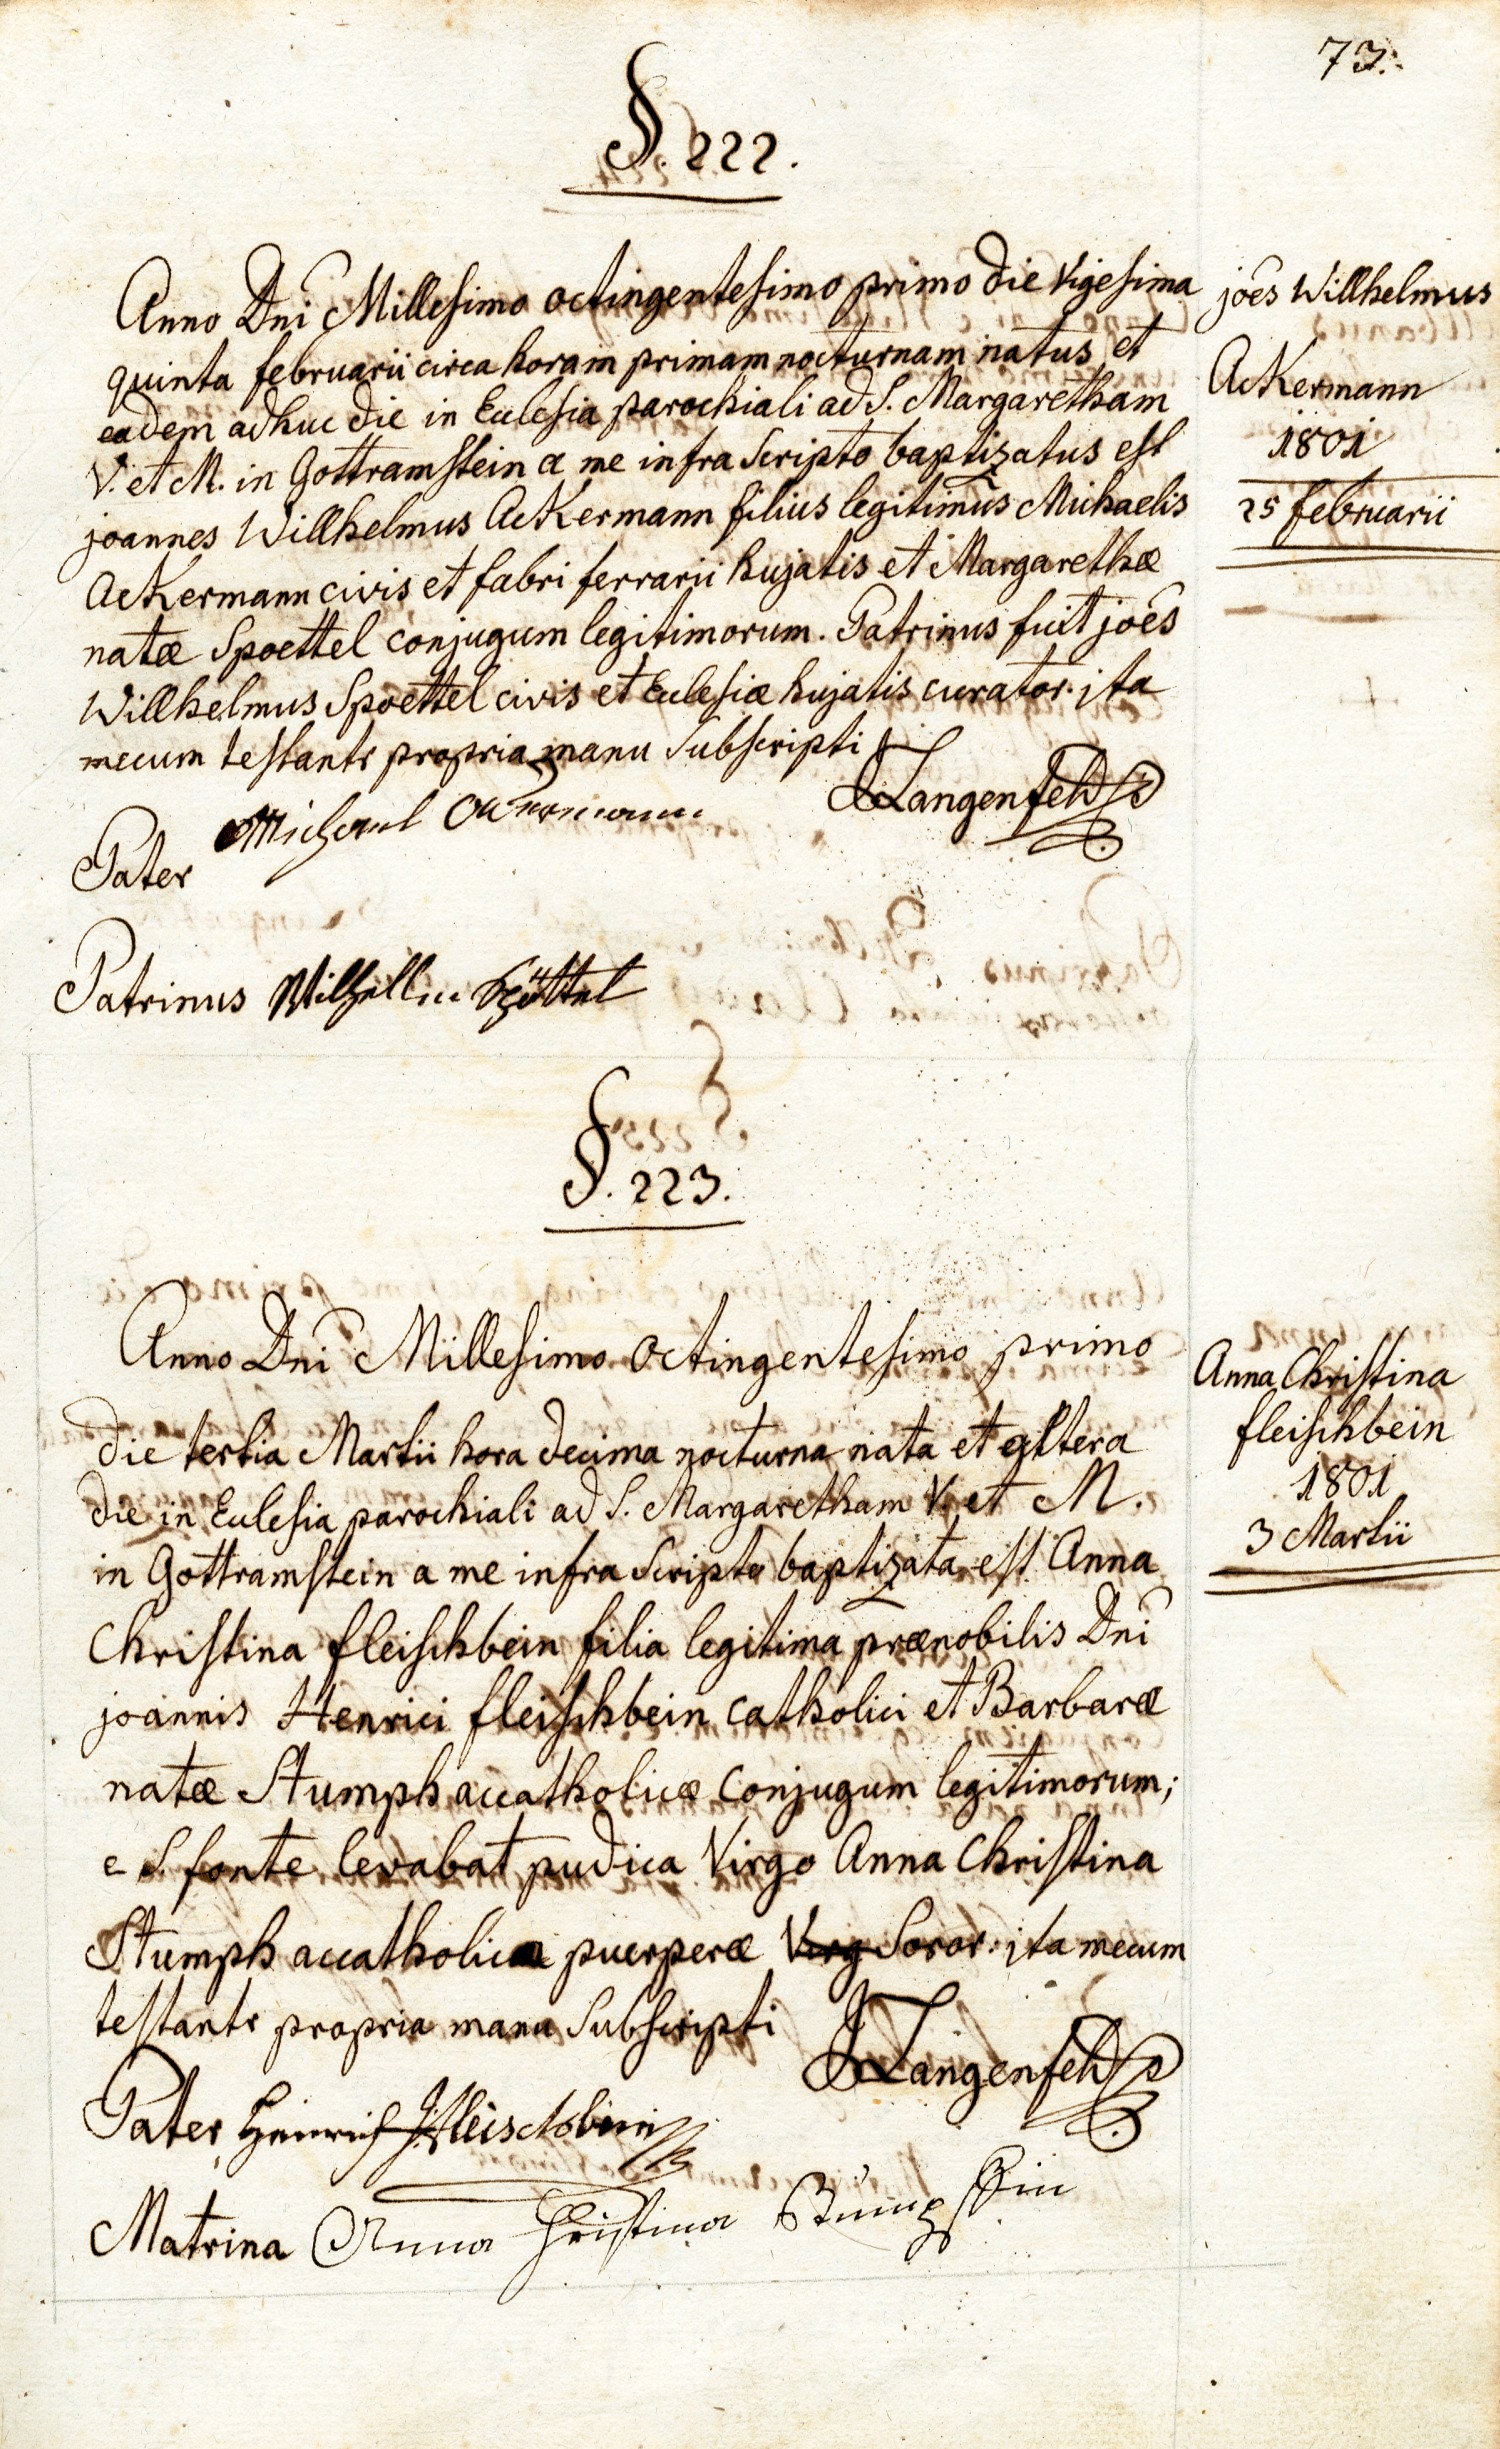 73.
§. 222.
Anno Dni Millesimo octingentesimo primo die vigesima
quinta februarii circa horam primam nocturnam natus et
eadem adhuc die in Ecclesia parochiali ad S. Margaretham
V. et M. in Gottramstein a me infra scripto baptizatus est
joannes Willhelmus AcKermann filius legitimus Michaelis
AcKermann civis et fabri ferrarii hujatis et Margarethæ
natæ Spoettel conjugum legitimorum. Patrinus fuit joes
Willhelmus Spoettel civis et Ecclesiæ hujatis curator. jta
mecum testantr propria manu subscripti
JLangenfeld
Pater Michael Ackermann
Patrinus Wilhellm Spöttel
joes Willhelmus
AcKermann
1801
25 februarii
§. 223.
Anno Dni Millesimo octingentesimo primo
die tertia Martii hora decima nocturna nata et altera
die in Ecclesia parochiali ad S. Margaretham V. et M.
in Gottramstein a me infra scripto baptizata est Anna
Christina fleischbein filia legitima prænobilis Dni
joannis Henrici fleischbein catholici et Barbaræ
natæ Stumph accatholicæ conjugum legitimorum;
e S. fonte levabat pudica Virgo Anna Christina
Stumph accatholica puerperæ Virg Soror. jta mecum
testantr propria manu subscripti
JLangenfeld
Pater Heinrich Fleischbein
Matrina Anna Christina Stumpfin
Anna Christina
fleischbein
1801
3 Martii